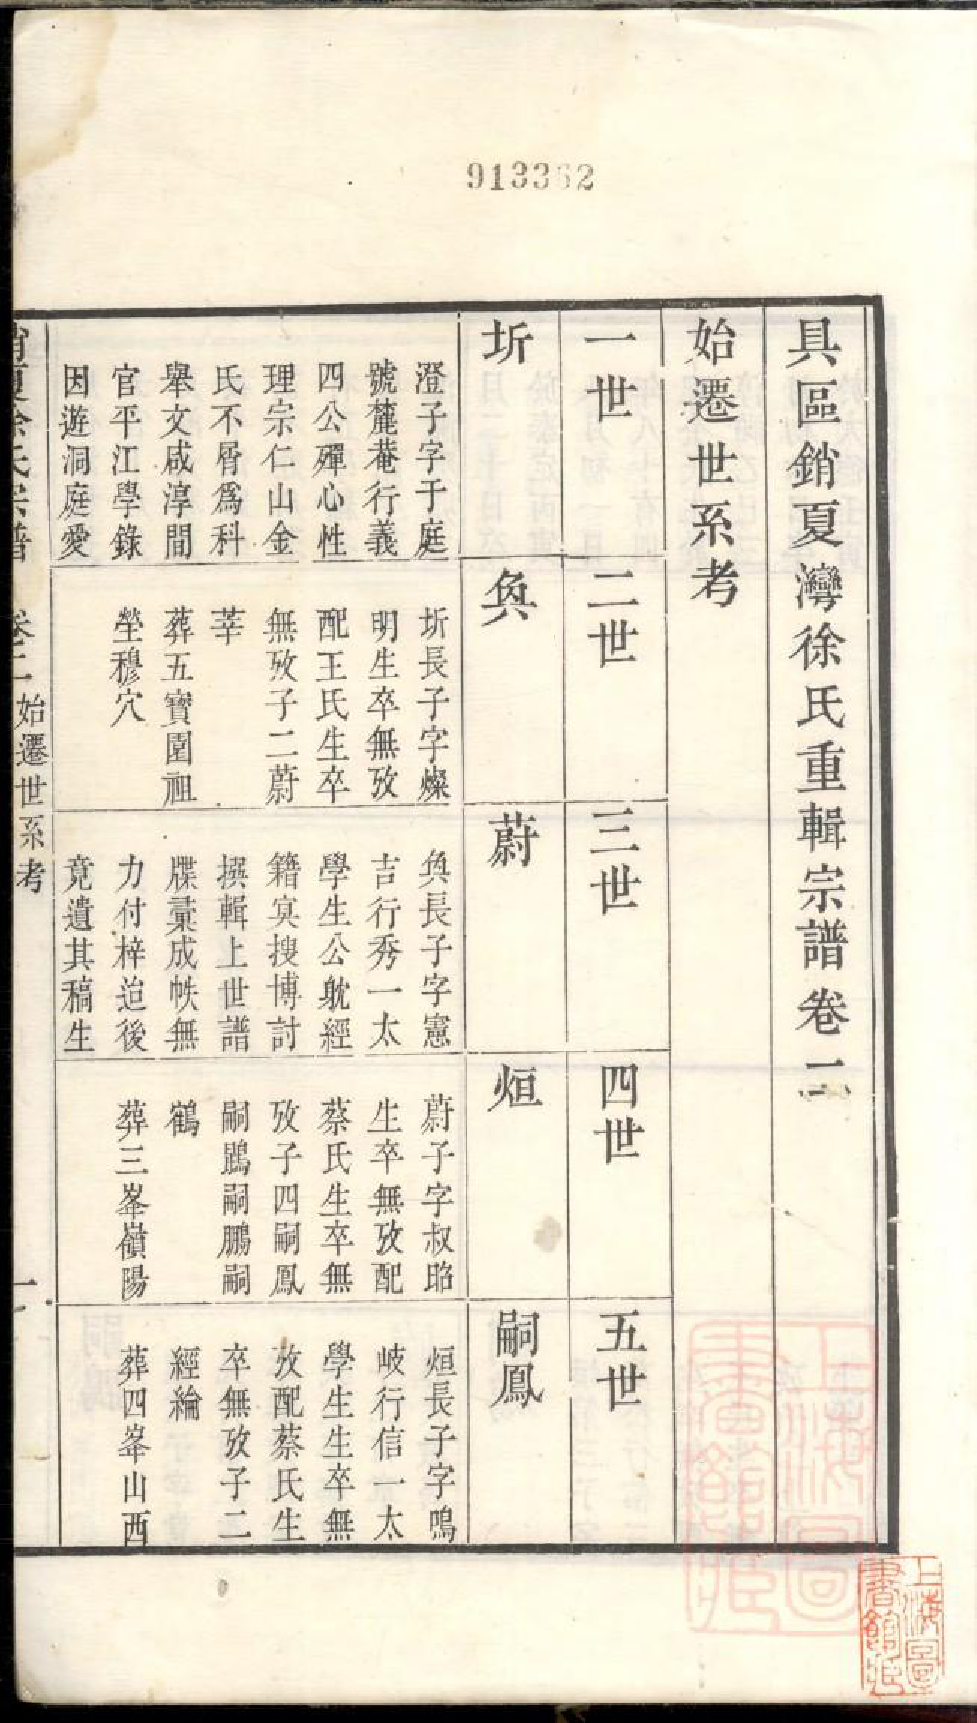 913362
具區銷夏灣徐氏重輯宗譜卷二
始遷世系考
一世
二世
三世
四世
五世
圻
奐
蔚
烜
嗣鳳
澄子字于庭
號麓菴行義
四公殫心性
理宗仁山金
氏不屑爲科
舉文咸淳間
官平江學錄
因遊洞庭愛
圻長子字燦
明生卒無攷
配王氏生卒
無攷子二蔚
莘
葬五寶園祖
塋穆穴
奐長子字憲
吉行秀一太
學生公躭經
籍冥搜博討
撰輯上世譜
牒稾成帙無
力付梓迨後
竟遺其稿生
蔚子字叔昭
生卒無攷配
蔡氏生卒無
攷子四嗣鳳
嗣鵾嗣鵬嗣
鶴
葬三峯嶺陽
烜長子字鳴
岐行信一太
學生生卒無
攷配蔡氏生
卒無攷子二
經綸
葬四峯山西
銷夏徐氏宗譜
卷二
始遷世系考
一
上海圖
書館藏
上海圖
書館藏